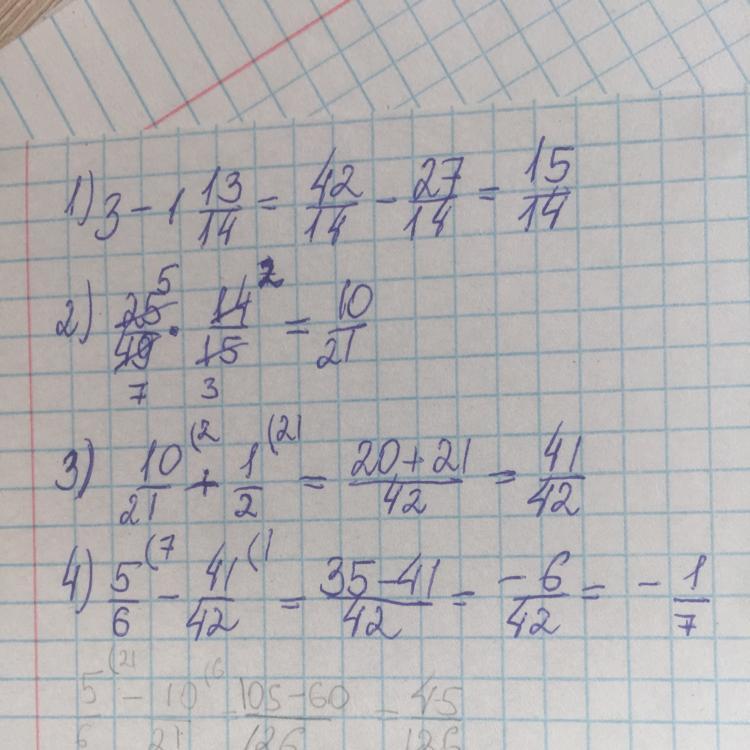 1) 3 - 1 13/14 = 42/14 - 27/14 = 15/14
2) 25/49 5 7 · 14/15 2 3 = 10/21
3) 10/21 (2 + 1/2 (21 = 20+21/42 = 41/42
4) 5/6 (7 - 41/42 (1 = 35-41/42 = -6/42 = -1/7
5/6 (21 - 10/21 (6 = 105-60/126 = 45/126